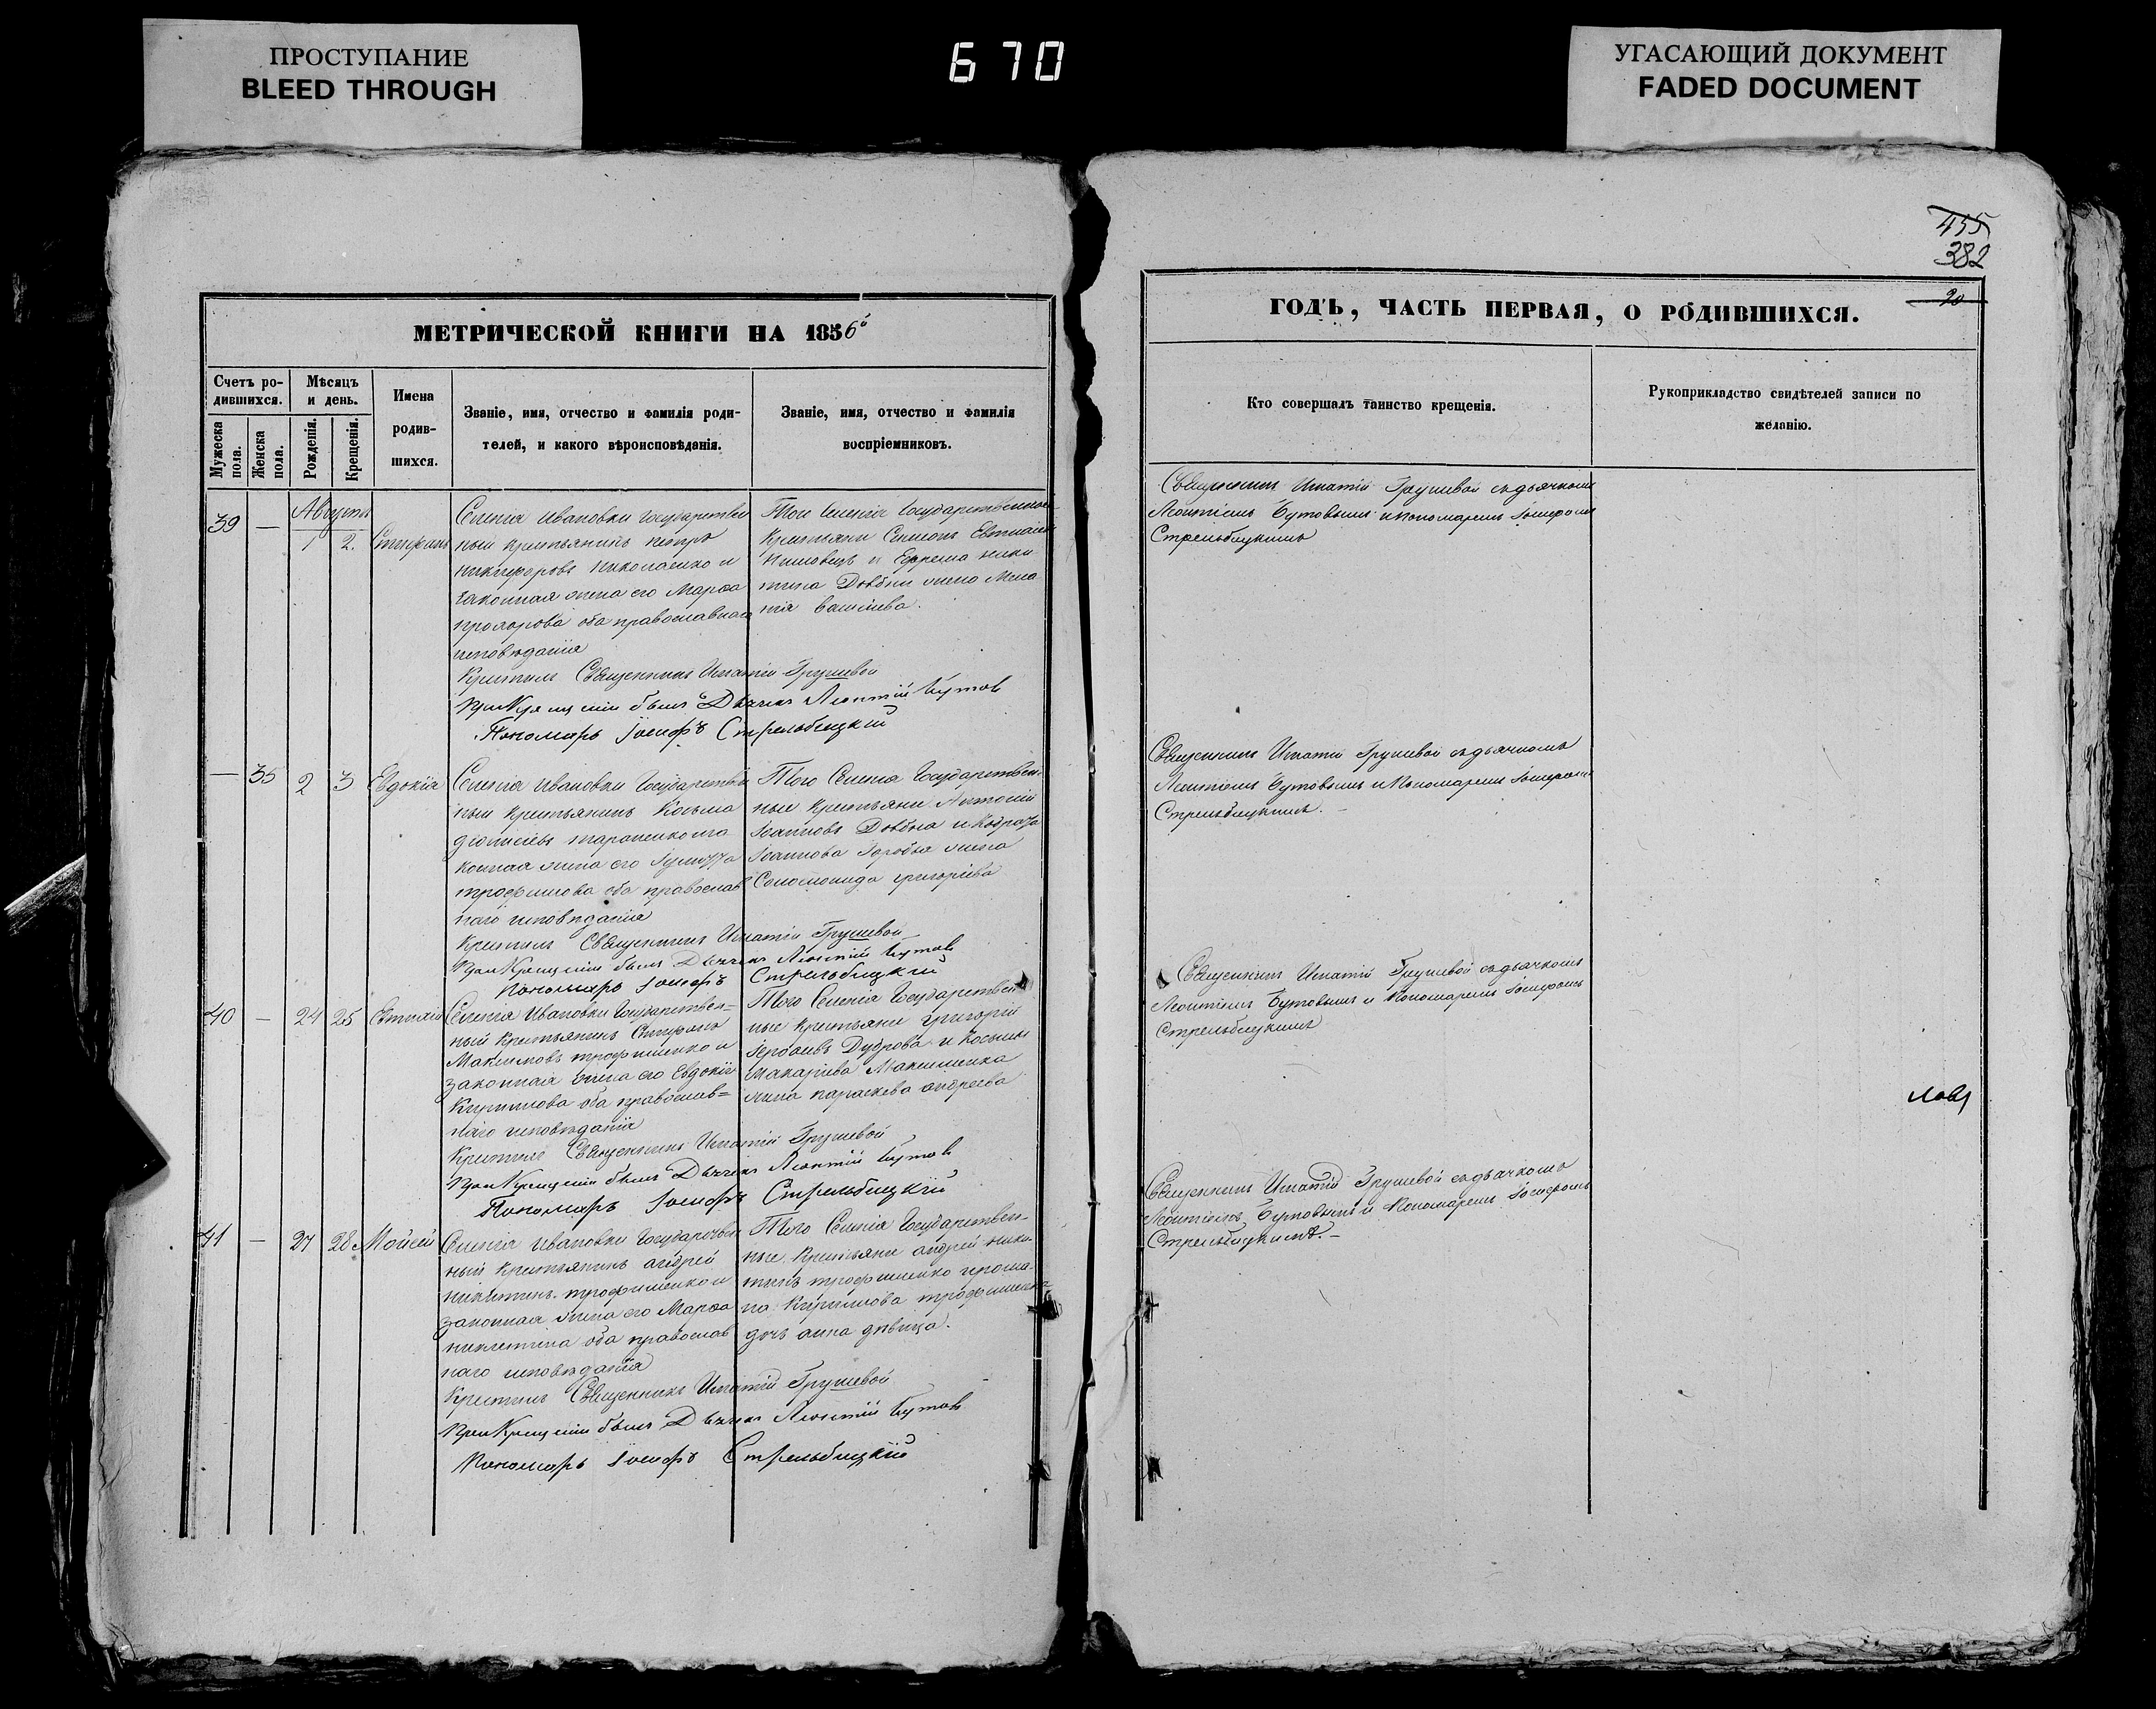 ПРОСТУПАНИЕ
BLEED THROUGH
670
УГАСАЮЩИЙ ДОКУМЕНТ
FADED DOCUMENT
МЕТРИЧЕСКОЙ КНИГИ НА 1856
Счетъ ро-
дившихся.
Мѣсяцъ
и день.
Мужеска
пола.
Женска
пола.
Рожденія.
Крещенія.
Имена
родив-
шихся.
Званіе, имя, отчество и фамилія роди-
телей, и какого вѣроисповѣданія.
Званіе, имя, отчество и фамилія
воспріемниковъ.
Августъ
39 — 1 2.
Селенія Ивановки Государствен
ный крестьянинъ Петръ
Никифоровъ Николаенко и
законная жена его Марѳа
Прохорова оба православнаго
исповѣданія
Того Селенія Государственные
Крестьяни
и Ефрема Ники
тина Довбни жена
Крестилъ Священникъ Игнатій Грушевой
При Крещеніи былъ Дьячекъ Леонтій Бутовъ
Пономарь Іосифъ Стрельбицкій
— 35 2 3 Евдокія
Селенія Ивановки Государствен
ный крестьянинъ Косьма
Діонисіевъ за
конная жена его
Трофимова оба православ
наго исповѣданія
Того Селенія Государствен-
ные Крестьяни Антоній
Іоанновъ Довбня и Кодрата
Іоаннова жена
Соломонида Григоріева
Крестилъ Священникъ Игнатій Грушевой
При Крещеніи былъ Дьячекъ Леонтій Бутовъ
Пономарь Іосифъ Стрельбицкій
40 — 24 25
Селенія Ивановки Государствен=
ный Крестьянинъ Стефанъ
Максимовъ Трофименко и
законная жена его Евдокія
Кириллова оба православ=
наго исповѣданія
Того Селенія Государствен
ные Крестьяни Григорій
и Косьмы
Макаріева Максименка
жена Параскева Андреева
Крестилъ Священникъ Игнатій Грушевой
При Крещеніи былъ Дьячекъ Леонтій Бутовъ
Пономарь Іосифъ Стрельбицкій
41 — 27 28 Мойсей
Селенія Ивановки Государствен
ный Крестьянинъ Андрей
Никитинъ Трофименко и
законная жена его Марѳа
оба православ
наго исповѣданія
Того Селенія Государствен-
ные Крестьяни Андрей Ники-
тинъ Трофименко
Кириллова Трофименка
дочь Анна дѣвица.
Крестилъ Священникъ Игнатій Грушевой
При Крещеніи былъ Дьячекъ Леонтій Бутовъ
Пономарь Іосифъ Стрельбицкій
455
382
20
ГОДЪ, ЧАСТЬ ПЕРВАЯ, О РОДИВШИХСЯ.
Кто совершалъ таинство крещенія.
Рукоприкладство свидѣтелей записи по
желанію.
Священникъ Игнатій Грушевой съ дьячкомъ
Леонтіемъ Бутовымъ и пономаремъ Іосифомъ
Стрельбицкимъ
Священникъ Игнатій Грушевой съ дьячкомъ
Леонтіемъ Бутовымъ и Пономаремъ Іосифомъ
Стрельбицкимъ.
Священникъ Игнатій Грушевой съ дьячкомъ
Леонтіемъ Бутовымъ и Пономаремъ Іосифомъ
Стрельбицкимъ
Священникъ Игнатій Грушевой съ дьячкомъ
Леонтіемъ Бутовымъ и Пономаремъ Іосифомъ
Стрельбицкимъ.